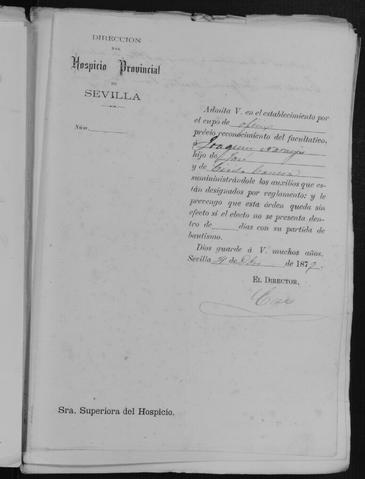 DIRECCION
DEL
Hospicio Provincial
DE
SEVILLA
Núm.
Admita V. en el establecimiento por
el cupo de
prévio reconocimiento del facultativo,
á Joaquin Naranjo
hijo de José
y de
suministrándole los auxilios que es-
tán designados por reglamento; y le
prevengo que esta órden queda sin
efecto si el electo no se presenta den-
tro de dias con su partida de
bautismo.
Dios guarde á V. muchos años.
Sevilla 29 de de 1877.
EL DIRECTOR,
Sra. Superiora del Hospicio.